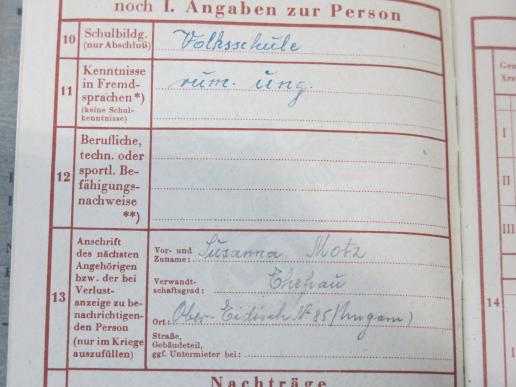 noch I. Angaben zur Person
10 Schulbildg. (nur Abschluß) Volksschule
11 Kenntnisse in Fremd-
sprachen*)
(keine Schul-
kenntnisse)
rum. ung.
12 Berufliche,
techn. oder
sportl. Be-
fähigungs-
nachweise
**)
13 Anschrift
des nächsten
Angehörigen
bzw. der bei
Verlust-
anzeige zu be-
nachrichtigen-
den Person
(nur im Kriege
auszufüllen)
Vor- und
Zuname: Susanna Motz
Verwandt-
schaftsgrad: Ehefrau
Ort: Ober-Eidisch № 85 (Ungarn)
Straße,
Gebäudeteil,
ggf. Untermieter bei:
Nachträge
I
II
III
14